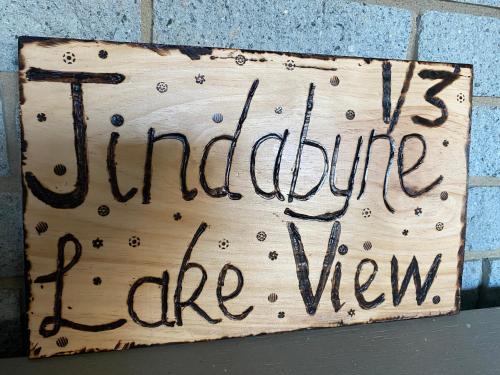 Jindabyne 1/3
Lake View.